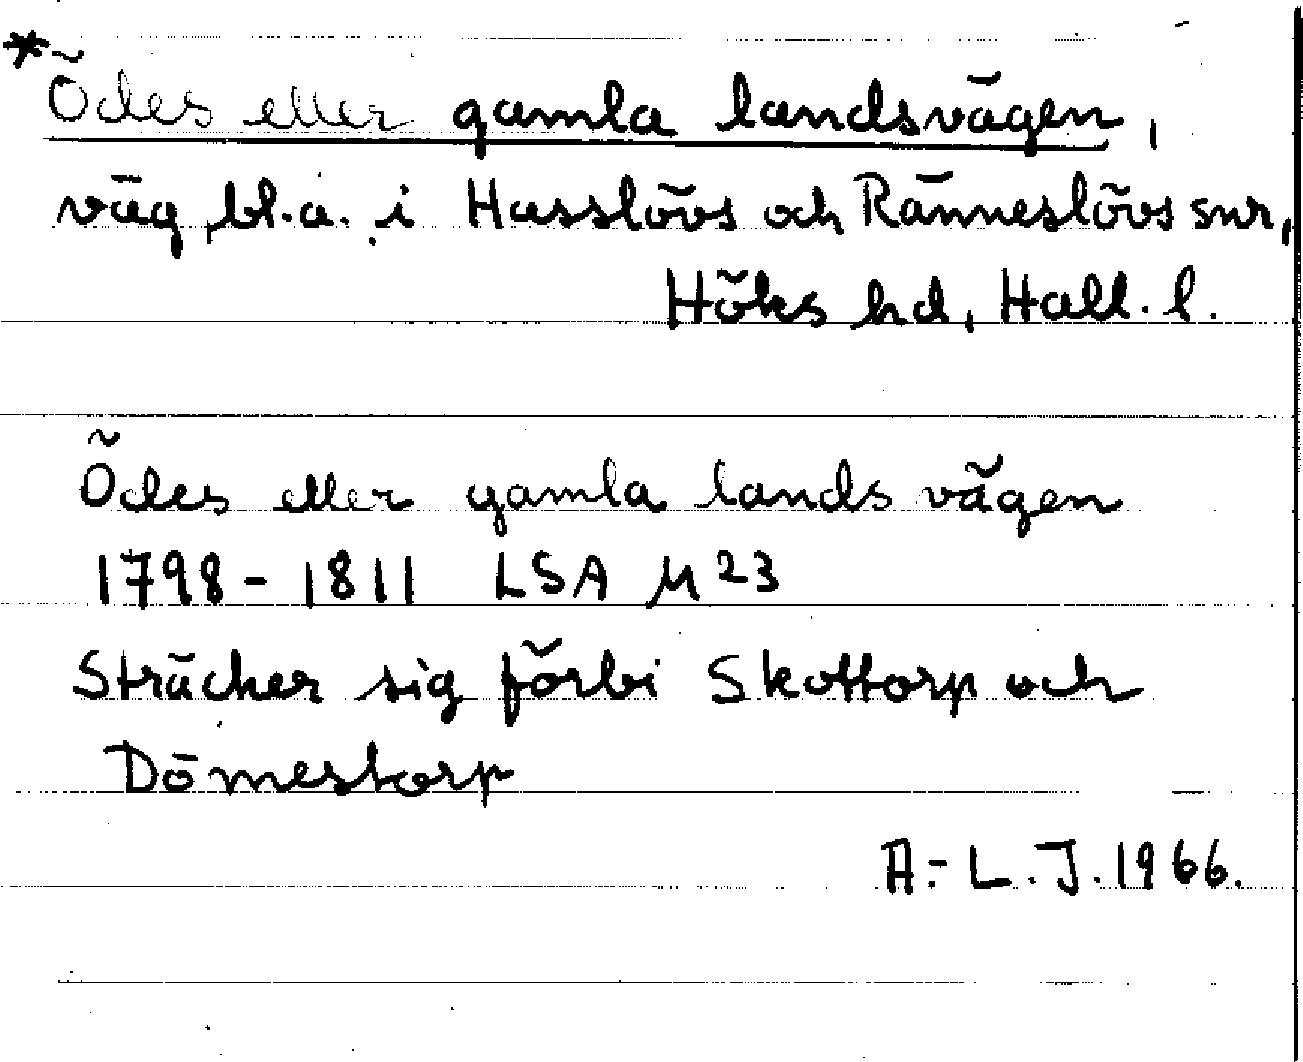 *Ödes eller gamla landsvägen,
väg, bl.a. i Hasslövs och Ränneslövs snr,
Höks hd, Hall. l.
Ödes eller gamla lands vägen
1798-1811 LSA M 23
Sträcker sig förbi Skottorp och
Dömestorp
A.-L.J. 1966.